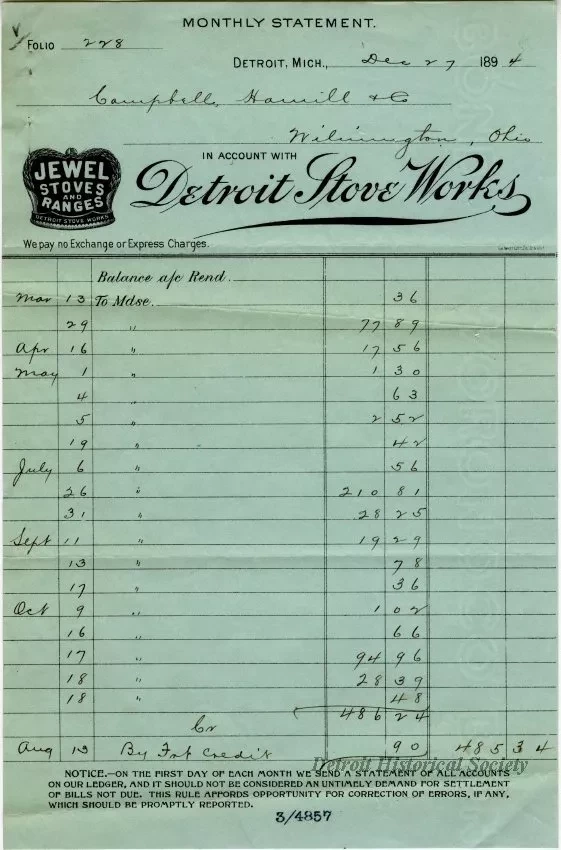 MONTHLY STATEMENT.
FOLIO 228
DETROIT, MICH., Dec 27 1894
Campbell, Hamill & Co
Wilmington, Ohio
IN ACCOUNT WITH
JEWEL
STOVES
AND
RANGES
DETROIT STOVE WORKS
Detroit Stove Works
We pay no Exchange or Express Charges.
Balance a/c Rend.
Mar 13 To Mdse. 36
29 " 77 89
Apr 16 " 17 56
May 1 " 1 30
4 " 63
5 " 2 52
19 " 42
July 6 " 56
26 " 210 81
31 " 28 25
Sept 11 " 19 29
13 " 78
17 " 36
Oct 9 " 1 02
16 " 66
17 " 94 96
18 " 28 39
18 " 48
486 24
Cr
Aug 13 By Frt Credit 90 485 34
Detroit Historical Society
NOTICE.—ON THE FIRST DAY OF EACH MONTH WE SEND A STATEMENT OF ALL ACCOUNTS
ON OUR LEDGER, AND IT SHOULD NOT BE CONSIDERED AN UNTIMELY DEMAND FOR SETTLEMENT
OF BILLS NOT DUE. THIS RULE AFFORDS OPPORTUNITY FOR CORRECTION OF ERRORS, IF ANY,
WHICH SHOULD BE PROMPTLY REPORTED.
3/4857